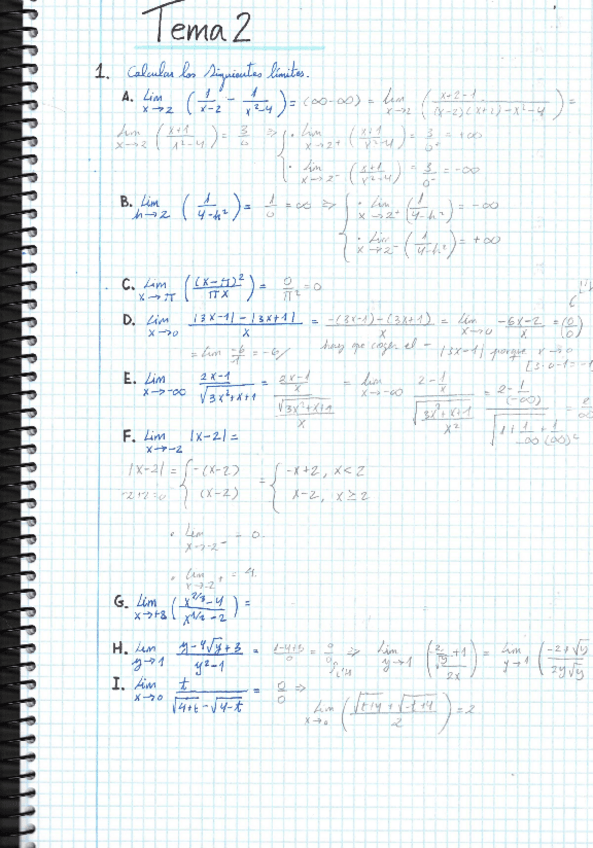 Tema 2
1. Calcular los siguientes límites.
A. Lim x→2 (1/(x-2) - 1/(x²-4)) = (∞-∞) = Lim x→2 (x+2-1/(x-2)(x+2)-x²-4) =
Lim x→2 (x+1/x²-4) = 3/0 ⇒ { · Lim x→2⁺ (x+1/x²-4) = 3/0⁺ = +∞
· Lim x→2⁻ (x+1/x²-4) = 3/0⁻ = -∞
B. Lim h→2 (1/(4-h²)) = 1/0 = ∞ ⇒ { · Lim (1/4-h²) = -∞
· Lim x→2⁻ (1/4-h²) = +∞
C. Lim x→π ((x-π)²/πx) = 0/π² = 0
D. Lim x→0 (|3x-1| - |3x+1|)/x = (-(3x-1)-(3x+1))/x = Lim x→0 (-6x-2)/x = (0/0)
= Lim -6/1 = -6 hay que coger el - |3x-1| porque x→0
[3·0-1=-1
E. Lim x→-∞ (2x-1)/√(3x²+x+1) = ((2x-1)/x)/(√(3x²+x+1)/x) = Lim x→-∞ (2-1/x)/√((3x²+x+1)/x²) =
F. Lim x→-2 |x-2| =
|x-2| = { -(x-2) = { -x+2, x<2
(x-2) x-2, x≥2
· Lim x→-2⁻ = 0
· Lim x→-2⁺ = 4
G. Lim x→+8 ((x^2/3-4)/(x^1/3-2)) =
H. Lim y→1 (y-4√y+3)/(y²-1) = (1-4+3)/0 = 0/0 ⇒ Lim y→1
I. Lim x→0 t/(√(4+t)-√(4-t)) = 0/0 ⇒
Lim x→0 ((√(t+4)+√(-t+4))/2) = 2